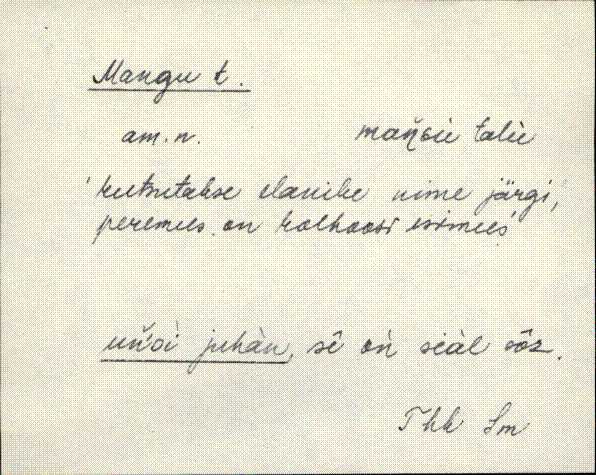 Mangu t.
am. n. maŋ̆ùi talu
'kutsutakse elanike nime järgi,
peremees on kolhoosi esimees'
uṅ̆oi juhàn, sê oǹ siàl
Thk Sm